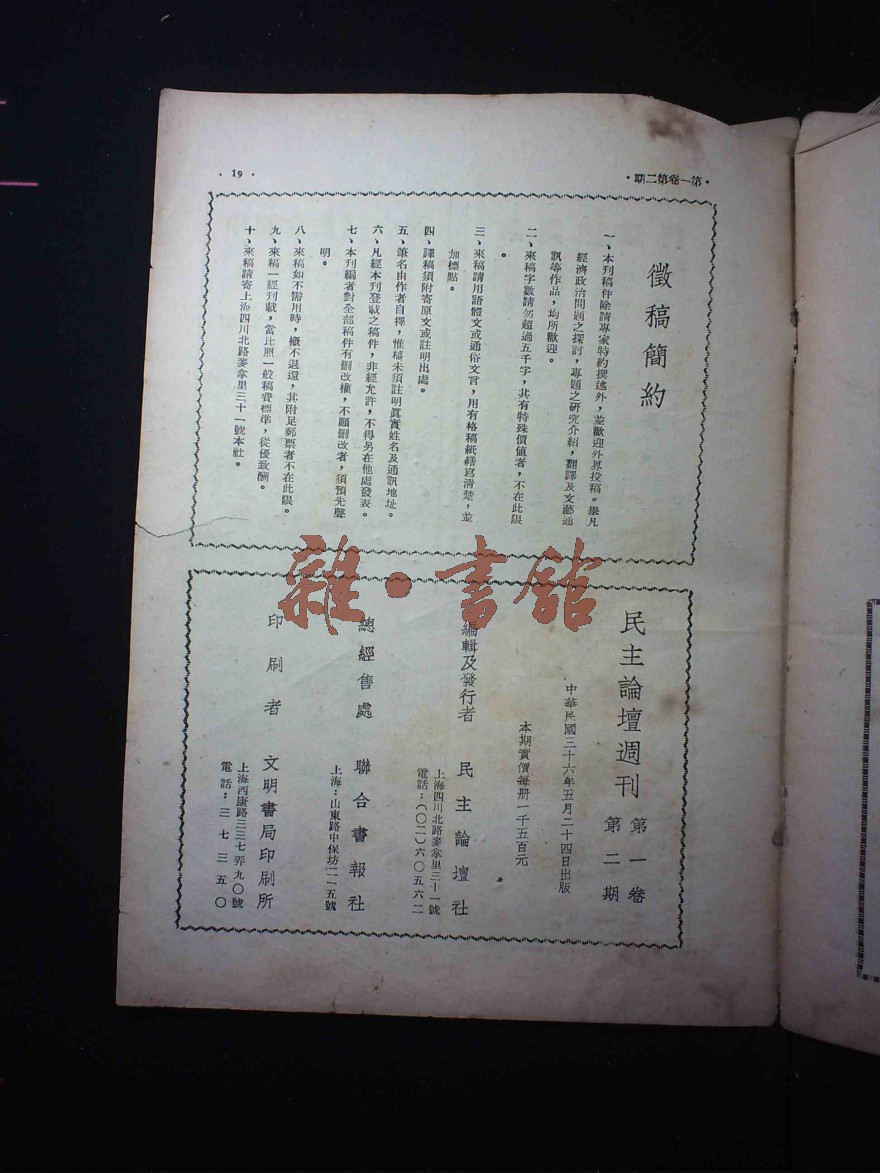 第一卷第二期
19
徵稿簡約
一、本刊稿件除請專家特約撰述外，並歡迎外界投稿。舉凡
經濟政治問題之探討，專題之研究介紹，翻譯及文藝通
訊等作品，均所歡迎。
二、來稿字數請勿超過五千字，其有特殊價値者，不在此限
。
三、來稿請用語體文或通俗文言，用有格稿紙繕寫清楚，並
加標點。
四、譯稿須附寄原文或註明出處。
五、筆名由作者自擇，惟稿末須註明眞實姓名及通訊地址。
六、凡經本刊登載之稿件，非經允許，不得另在他處發表。
七、本刊編者對全部稿件有刪改權，不願刪改者，須預先聲
明。
八、來稿如不需用時，槪不退還，其附足郵票者不在此限。
九、來稿一經刊載，當比照一般稿費標準，從優致酬。
十、來稿請寄上海四川北路麥拿里三十一號本社。
雜·書館
民主論壇週刊 第一卷
第二期
中華民國三十六年五月二十四日出版
本期實價每册一千五百元
編輯及發行者 民主論壇社
上海四川北路麥拿里三十一號
電話：（〇二）六〇五六二
總經售處 聯合書報社
上海：山東路中保坊一一五號
印刷者 文明書局印刷所
上海西康路三三七弄九〇號
電話：三七三五〇